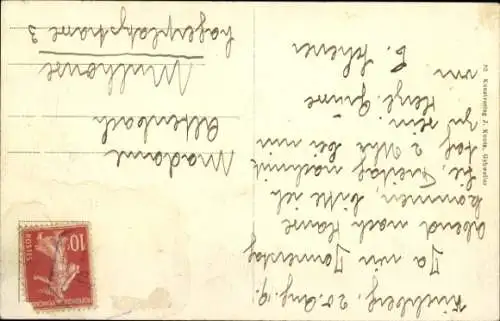 Kirchberg, 20. Aug. 19.
Da wir Donnerstag
abend nach Hause
kommen, bitte ich
Sie, Freitag nachmit
tag 2 Uhr bei mir
zu sein.
Herzl. Grüsse
von
E. Scherer
Madame
Altenbach
Mulhouse
Lagerplatzstrasse 3
10
POSTES
52 Kunstverlag J. Kuntz, Gebweiler